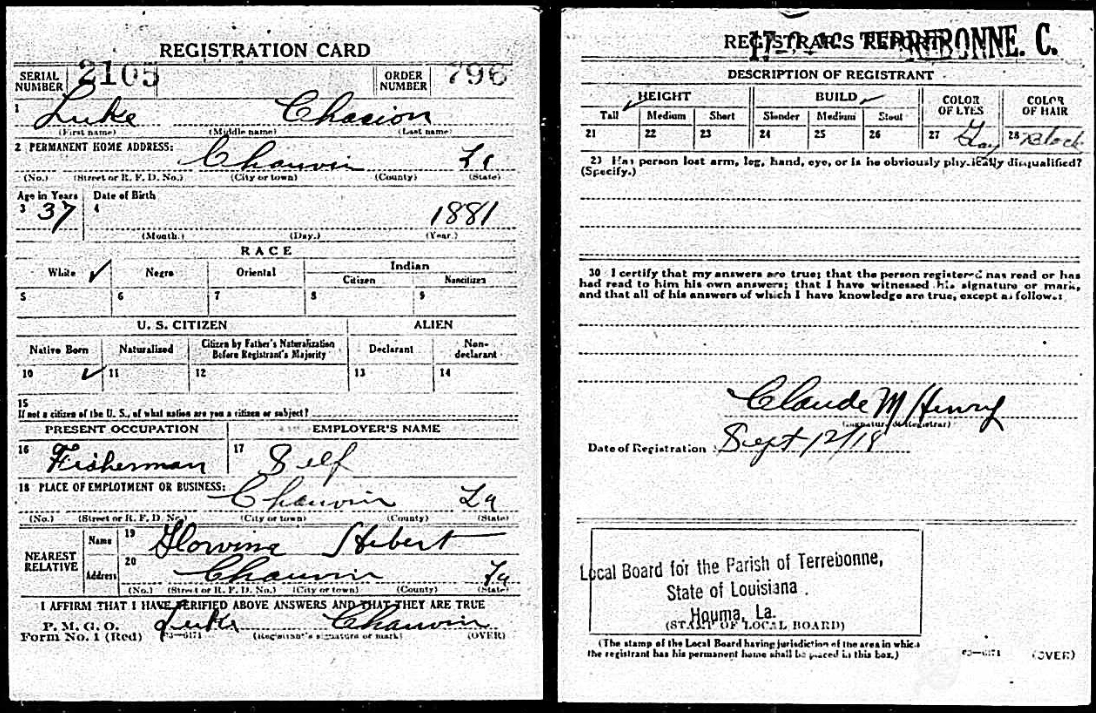 REGISTRATION CARD
SERIAL NUMBER 2105 ORDER NUMBER 796
1 Luke Chasion
(First name) (Middle name) (Last name)
2 PERMANENT HOME ADDRESS:
Chauvin La
(No.) (Street or R. F. D. No.) (City or town) (County) (State)
Age in Years Date of Birth
3 37 4 1881
(Month.) (Day.) (Year.)
RACE
White ✓ Negro Oriental Indian
Citizen Noncitizen
5 6 7 8 9
U. S. CITIZEN ALIEN
Native Born Naturalized Citizen by Father's Naturalization Before Registrant's Majority Declarant Non-declarant
10 ✓ 11 12 13 14
15
If not a citizen of the U. S., of what nation are you a citizen or subject?
PRESENT OCCUPATION EMPLOYER'S NAME
16 Fisherman 17 Self
18 PLACE OF EMPLOYMENT OR BUSINESS:
Chauvin La
(No.) (Street or R. F. D. No.) (City or town) (County) (State)
NEAREST RELATIVE
Name 19 Hebert
Address 20 Chauvin La
(No.) (Street or R. F. D. No.) (City or town) (County) (State)
I AFFIRM THAT I HAVE VERIFIED ABOVE ANSWERS AND THAT THEY ARE TRUE
P. M. G. O.
Form No. 1 (Red) 03—6171 Luke Chauvin
(Registrant's signature or mark) (OVER)
REGISTRAR'S REPORT
TERREBONNE. C.
DESCRIPTION OF REGISTRANT
HEIGHT BUILD COLOR OF EYES COLOR OF HAIR
Tall ✓ Medium Short Slender Medium ✓ Stout
21 22 23 24 25 26 27 Gay 28 Black
29 Has person lost arm, leg, hand, eye, or is he obviously physically disqualified?
(Specify.)
30 I certify that my answers are true; that the person registered has read or has
had read to him his own answers; that I have witnessed his signature or mark,
and that all of his answers of which I have knowledge are true, except as follows:
Claude M Henry
(Signature of Registrar)
Date of Registration Sept 12/18
Local Board for the Parish of Terrebonne,
State of Louisiana
Houma, La.
(STAMP OF LOCAL BOARD)
(The stamp of the Local Board having jurisdiction of the area in which
the registrant has his permanent home shall be placed in this box.)
03—6171 (OVER)